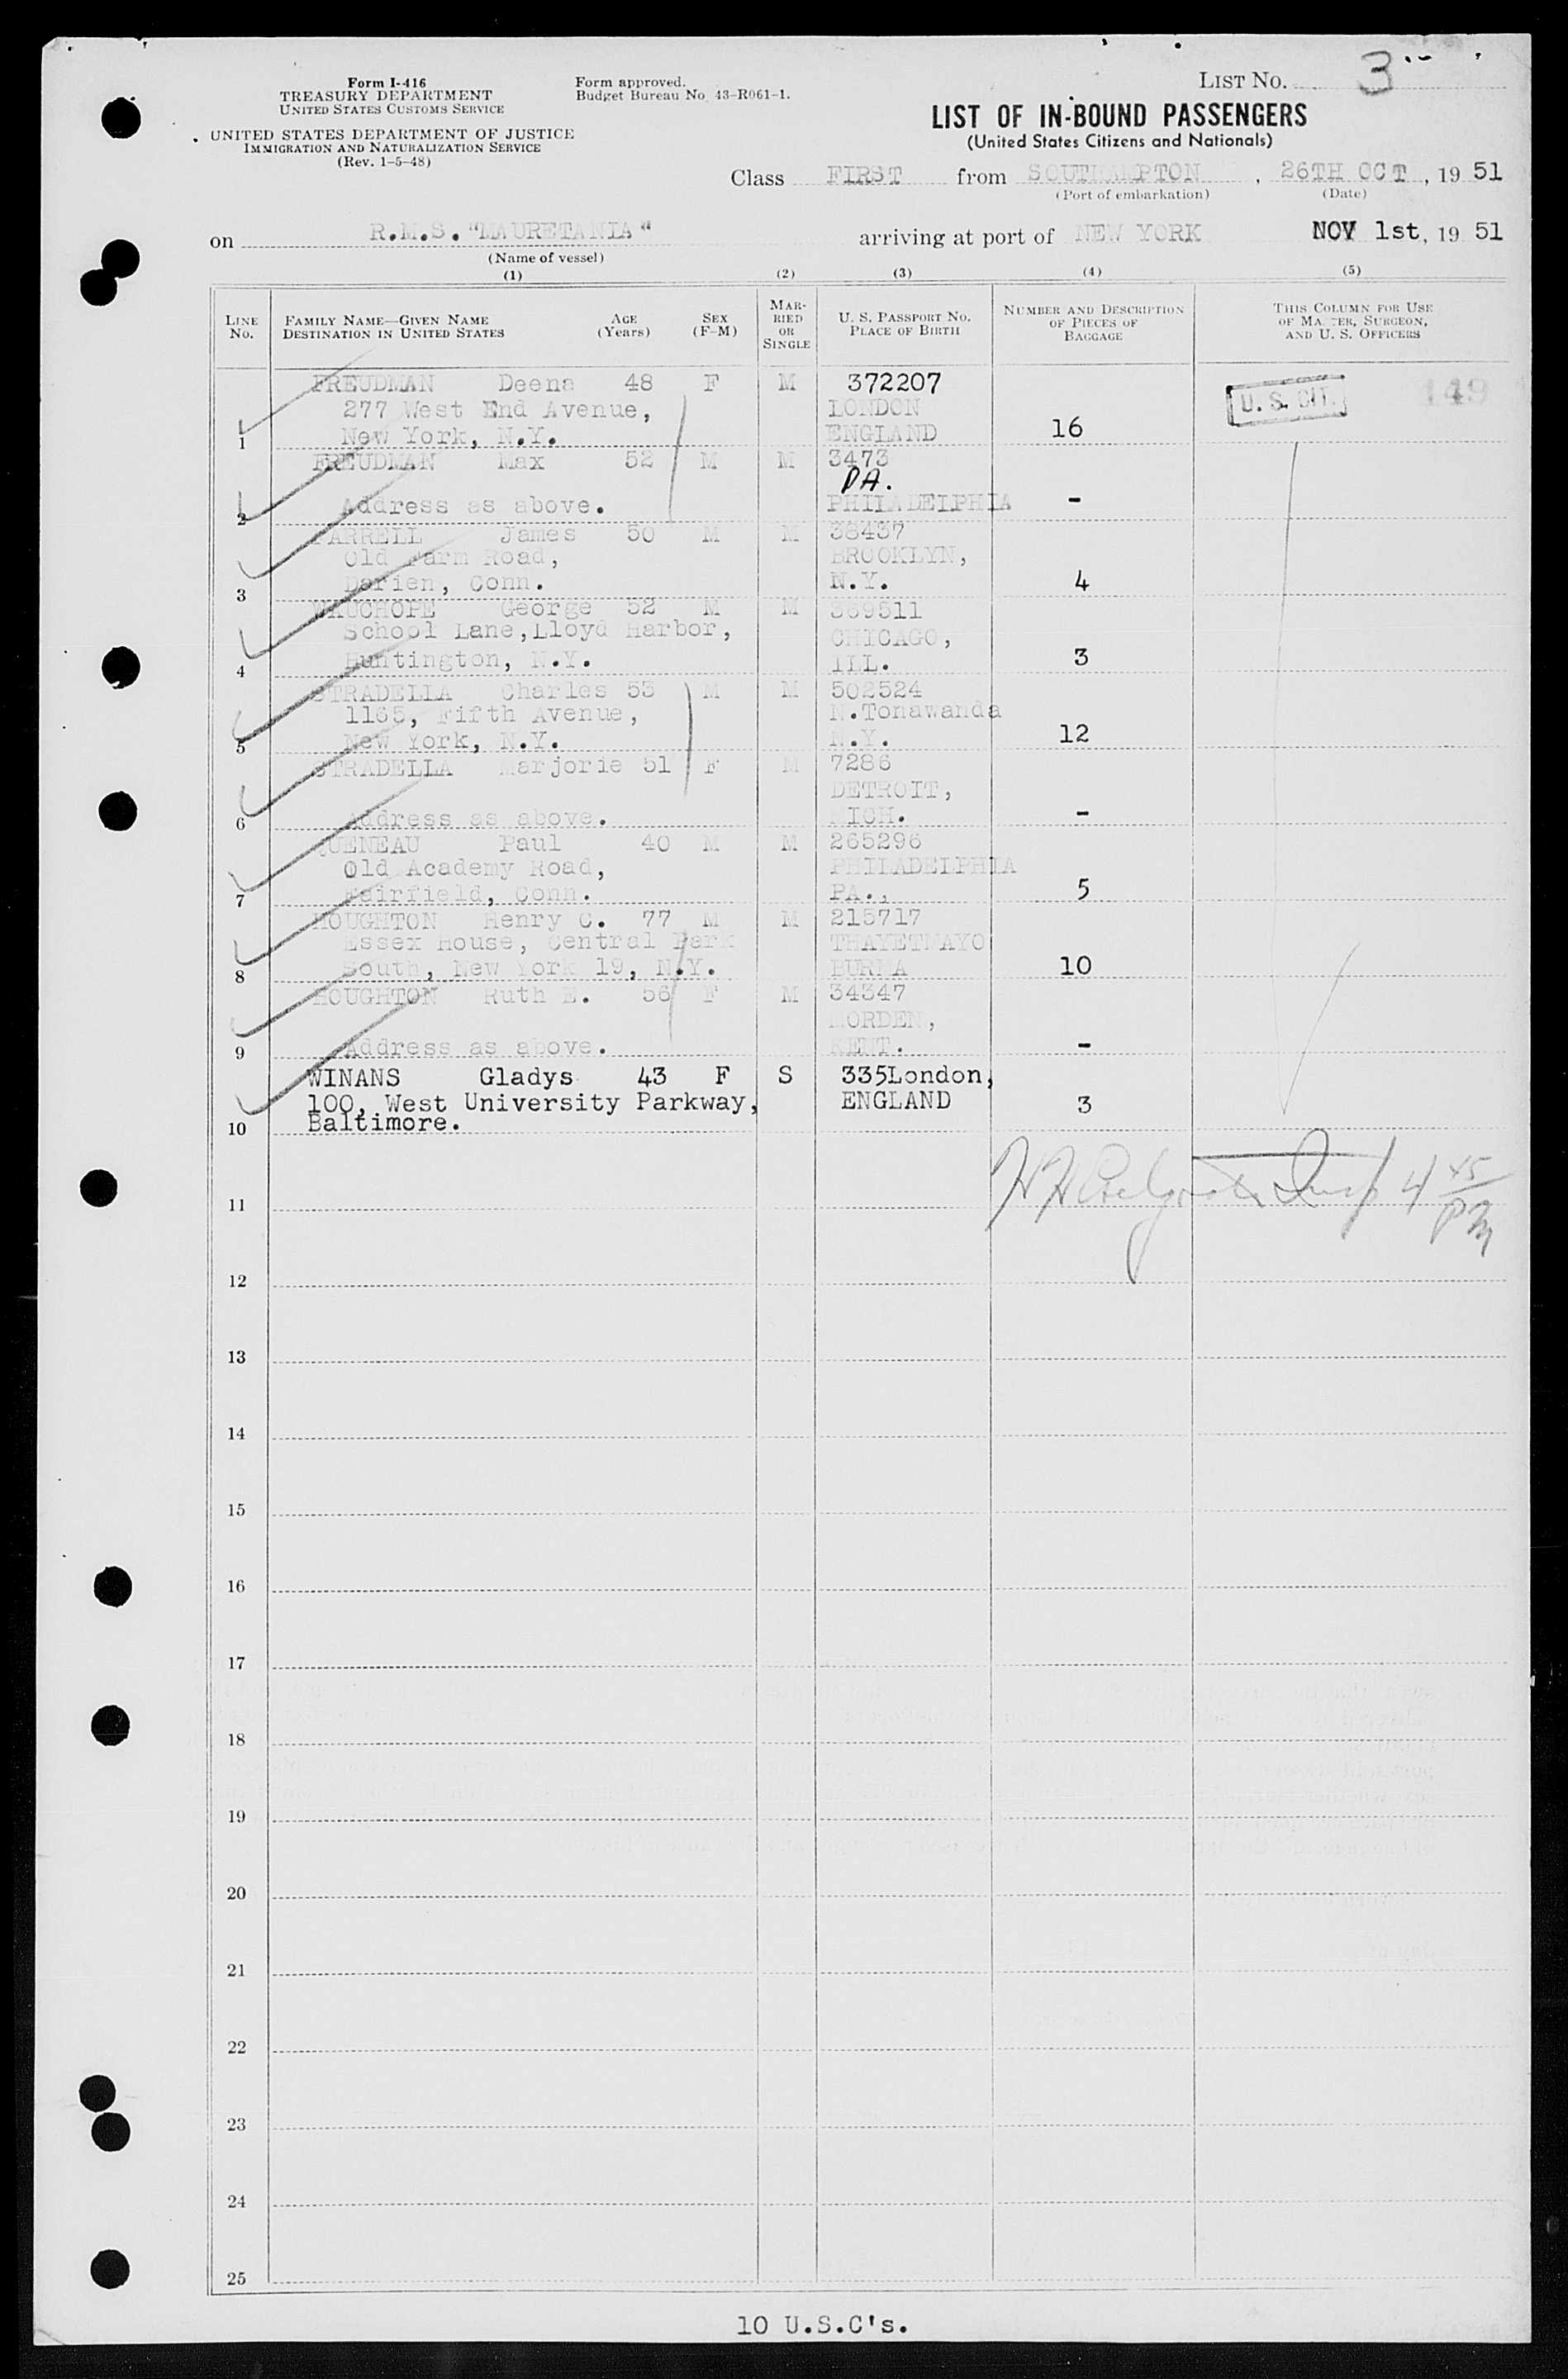 Form I-416
TREASURY DEPARTMENT
UNITED STATES CUSTOMS SERVICE
UNITED STATES DEPARTMENT OF JUSTICE
IMMIGRATION AND NATURALIZATION SERVICE
(Rev. 1-5-48)
Form approved.
Budget Bureau No. 43-R061-1.
LIST NO. 3
LIST OF IN-BOUND PASSENGERS
(United States Citizens and Nationals)
Class FIRST from SOUTHAMPTON, 26TH OCT, 19 51
(Port of embarkation) (Date)
on R.M.S. "MAURETANIA" arriving at port of NEW YORK NOV 1st, 19 51
(Name of vessel)
(1) (2) (3) (4) (5)
LINE NO. FAMILY NAME—GIVEN NAME DESTINATION IN UNITED STATES AGE (Years) SEX (F-M) MARRIED OR SINGLE U. S. PASSPORT NO. PLACE OF BIRTH NUMBER AND DESCRIPTION OF PIECES OF BAGGAGE THIS COLUMN FOR USE OF MASTER, SURGEON, AND U. S. OFFICERS
FREUDMAN Deena 48 F M 372207 U.S. CIT. 149
277 West End Avenue, LONDON
1 New York, N.Y. ENGLAND 16
FREUDMAN Max 52 M M 3473
PA.
2 Address as above. PHILADELPHIA -
FARRELL James 50 M M 38437
Old Farm Road, BROOKLYN,
3 Darien, Conn. N.Y. 4
WAUCHOPE George 52 M M 369511
School Lane, Lloyd Harbor, CHICAGO,
4 Huntington, N.Y. ILL. 3
STRADELLA Charles 53 M M 502524
1165, Fifth Avenue, N.Tonawanda
5 New York, N.Y. N.Y. 12
STRADELLA Marjorie 51 F M 7286
DETROIT,
6 Address as above. MICH. -
QUENEAU Paul 40 M M 265296
Old Academy Road, PHILADELPHIA
7 Fairfield, Conn. PA., 5
HOUGHTON Henry C. 77 M M 215717
Essex House, Central Park THAYETMAYO
8 South, New York 19, N.Y. BURMA 10
HOUGHTON Ruth E. 56 F M 34347
MORDEN,
9 Address as above. KENT. -
WINANS Gladys 43 F S 335London,
100, West University Parkway, ENGLAND 3
10 Baltimore.
Insp 4 45 PM
11
12
13
14
15
16
17
18
19
20
21
22
23
24
25
10 U.S.C's.